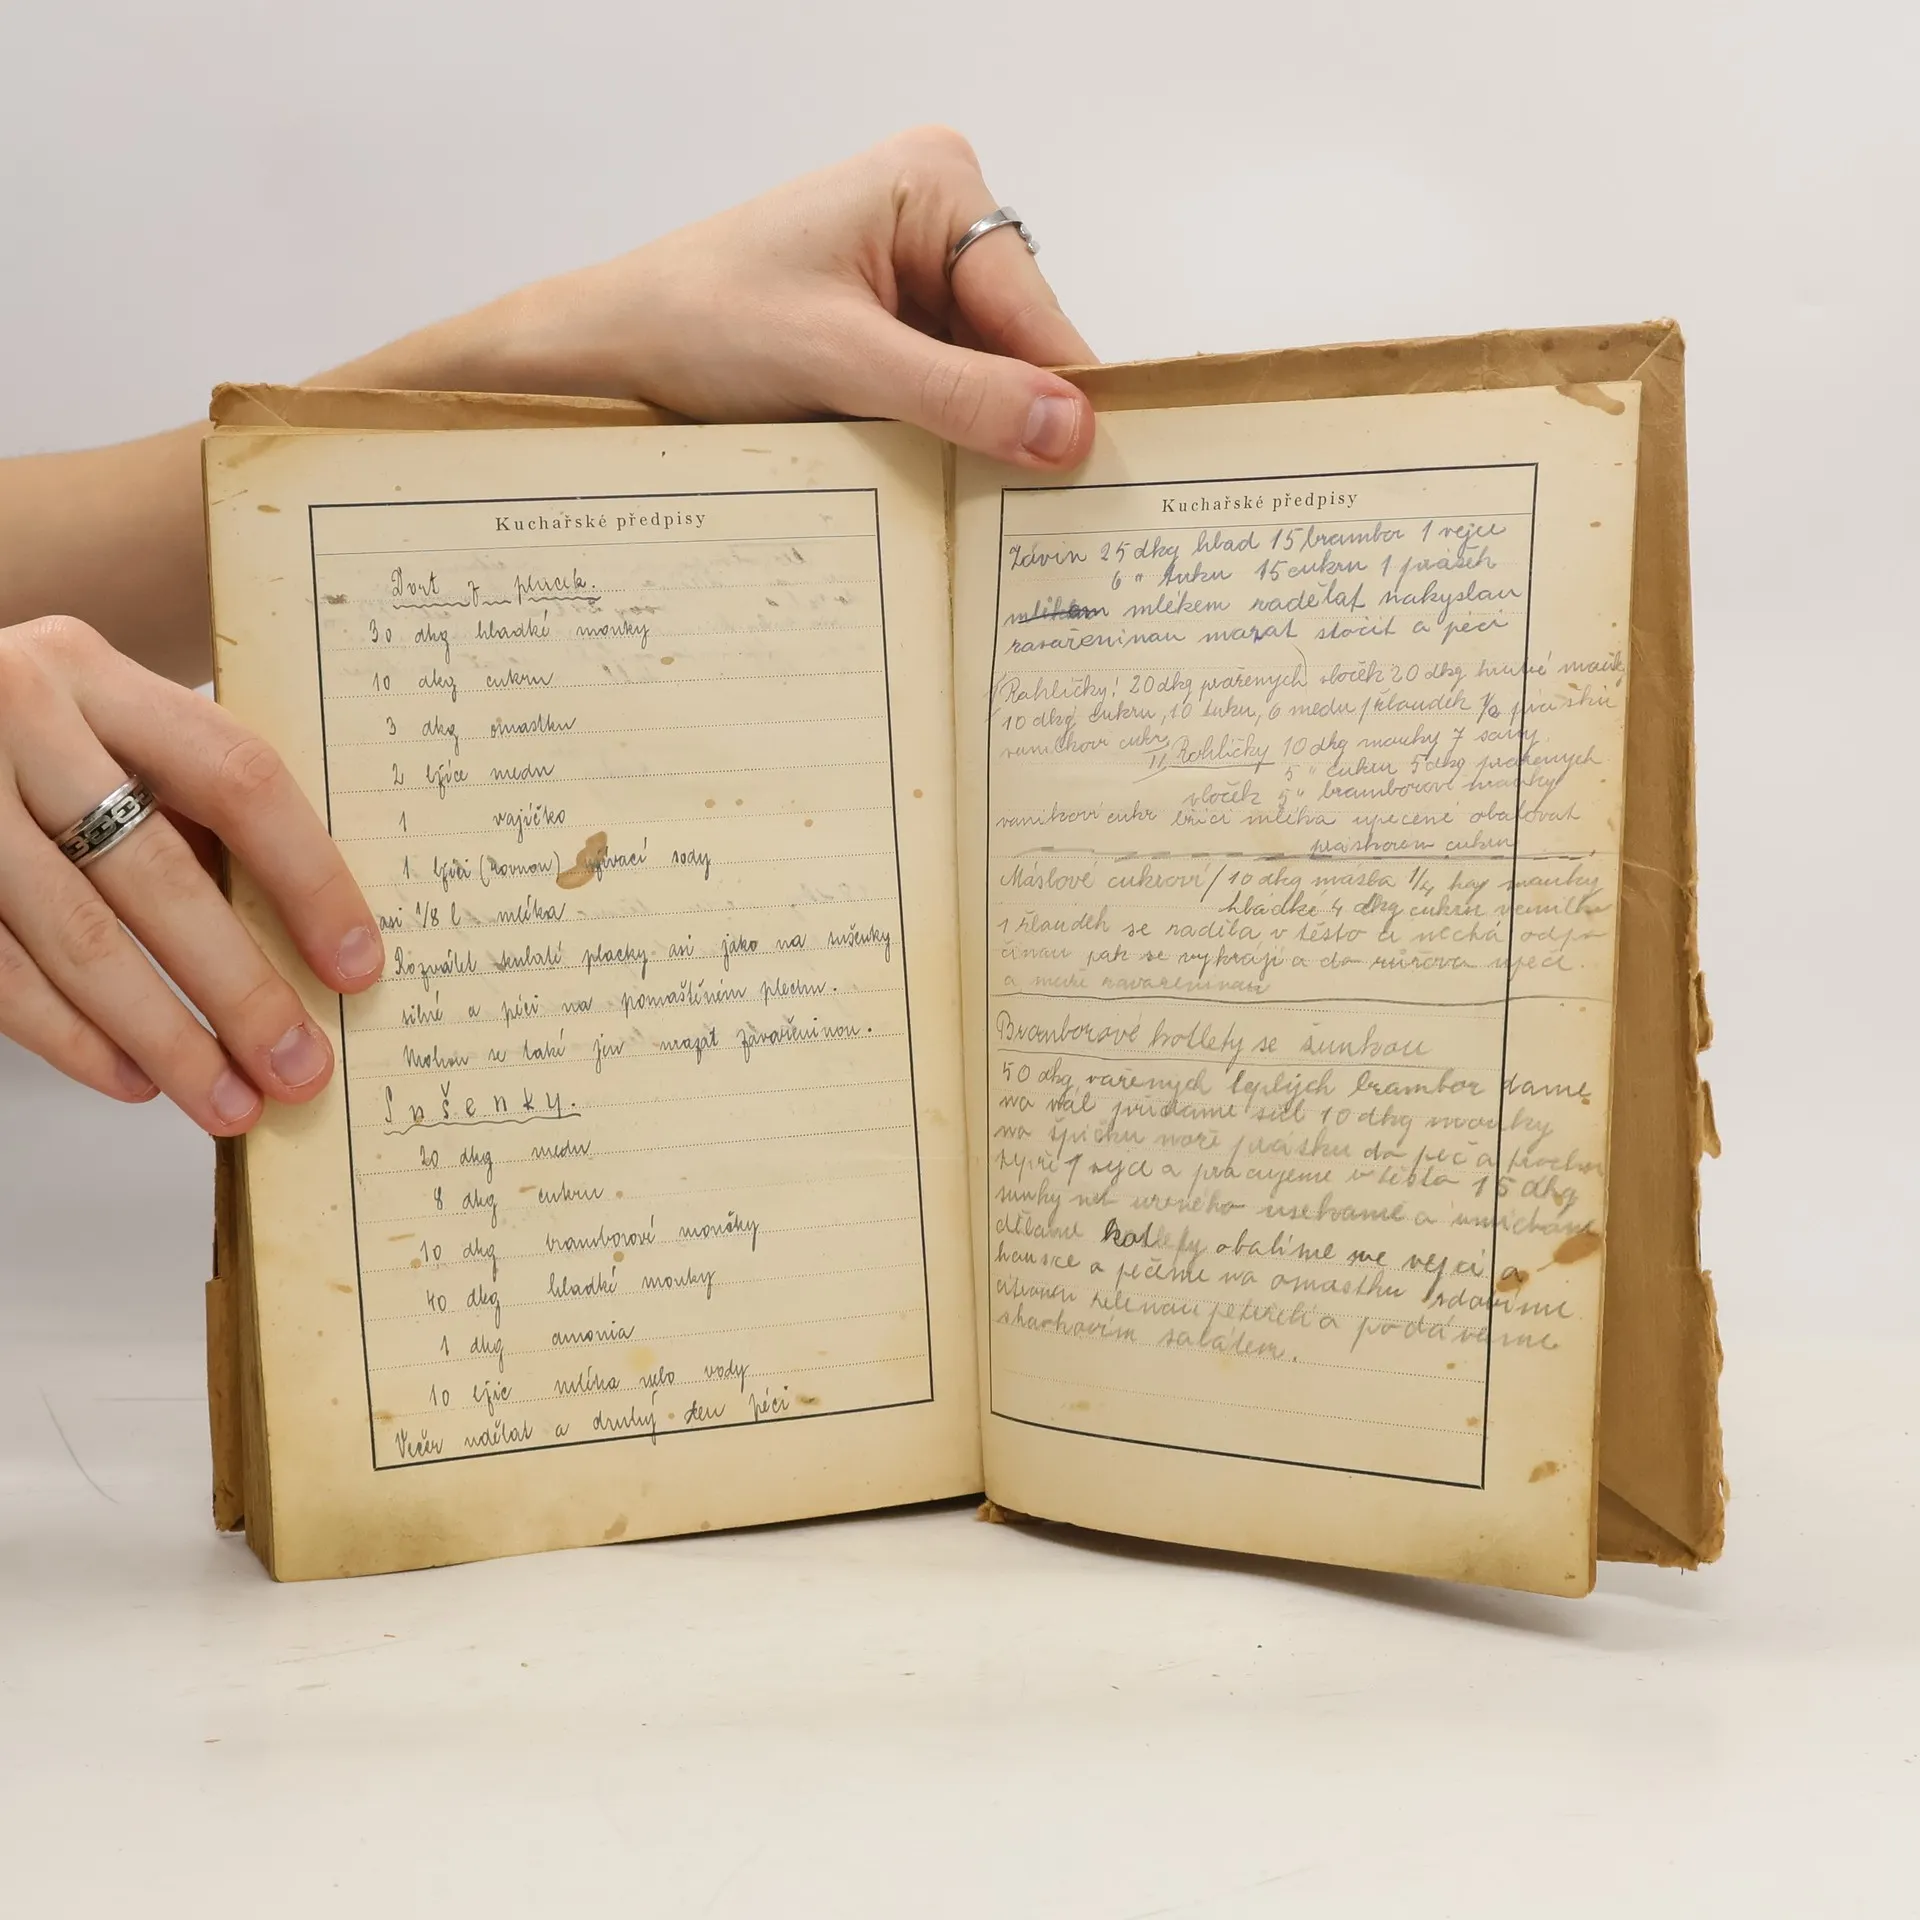 Kuchařské předpisy
Dort z placek.
30 dkg hladké mouky
10 dkg cukru
3 dkg omastku
2 lžíce medu
1 vajíčko
1 lžíci (rovnou) zažívací sody
asi 1/8 l mléka
Rozválet kulaté placky asi jako na sušenky
silné a péci na pomaštěném plechu.
Mohou se také jen mazat zavařeninou.
Sušenky.
20 dkg medu
8 dkg cukru
10 dkg bramborové moučky
40 dkg hladké mouky
1 dkg amonia
10 lžic mléka nebo vody
Večer udělat a druhý den péci
Kuchařské předpisy
Závin 25 dkg hlad 15 brambor 1 vejce
6 " tuku 15 cukru 1 prášek
mlékem mlékem zadělat nakyslou
zavařeninou mazat stočit a péci
Rohlíčky! 20 dkg pražených vloček 20 dkg hrubé mouky
10 dkg cukru, 10 tuku, 6 medu žloudek 1/2 prášku
vanilkoví cukr
II Rohlíčky 10 dkg mouky 7 sádry
5 " cukru 5 dkg pražených
vloček 5 " bramborové mouky
vanikoví cukr lžíci mléka upečené obalovat
práškovem cukru
Máslové cukroví / 10 dkg másla 1/4 kg mouky
hladké 4 dkg cukru vanilka
1 žloudek se zadělá v těsto a nechá odpo
činou pak se vykrájí a do růžova upečí
a maže zavařeninou
Bramborové kotlety se šunkou
50 dkg vařených teplých brambor dame
na vál přidame sůl 10 dkg mouky
na špičku nože prášku do peč a trochu
1 vejce a pracujeme v těsto 15 dkg
šunky neb uzeného usekame a umícháme
děláme kotlety obalíme ve vejci a
housce a pečeme na omastku zdobíme
citronem zelenou petrželí a podáváme
s harkovím salátem.